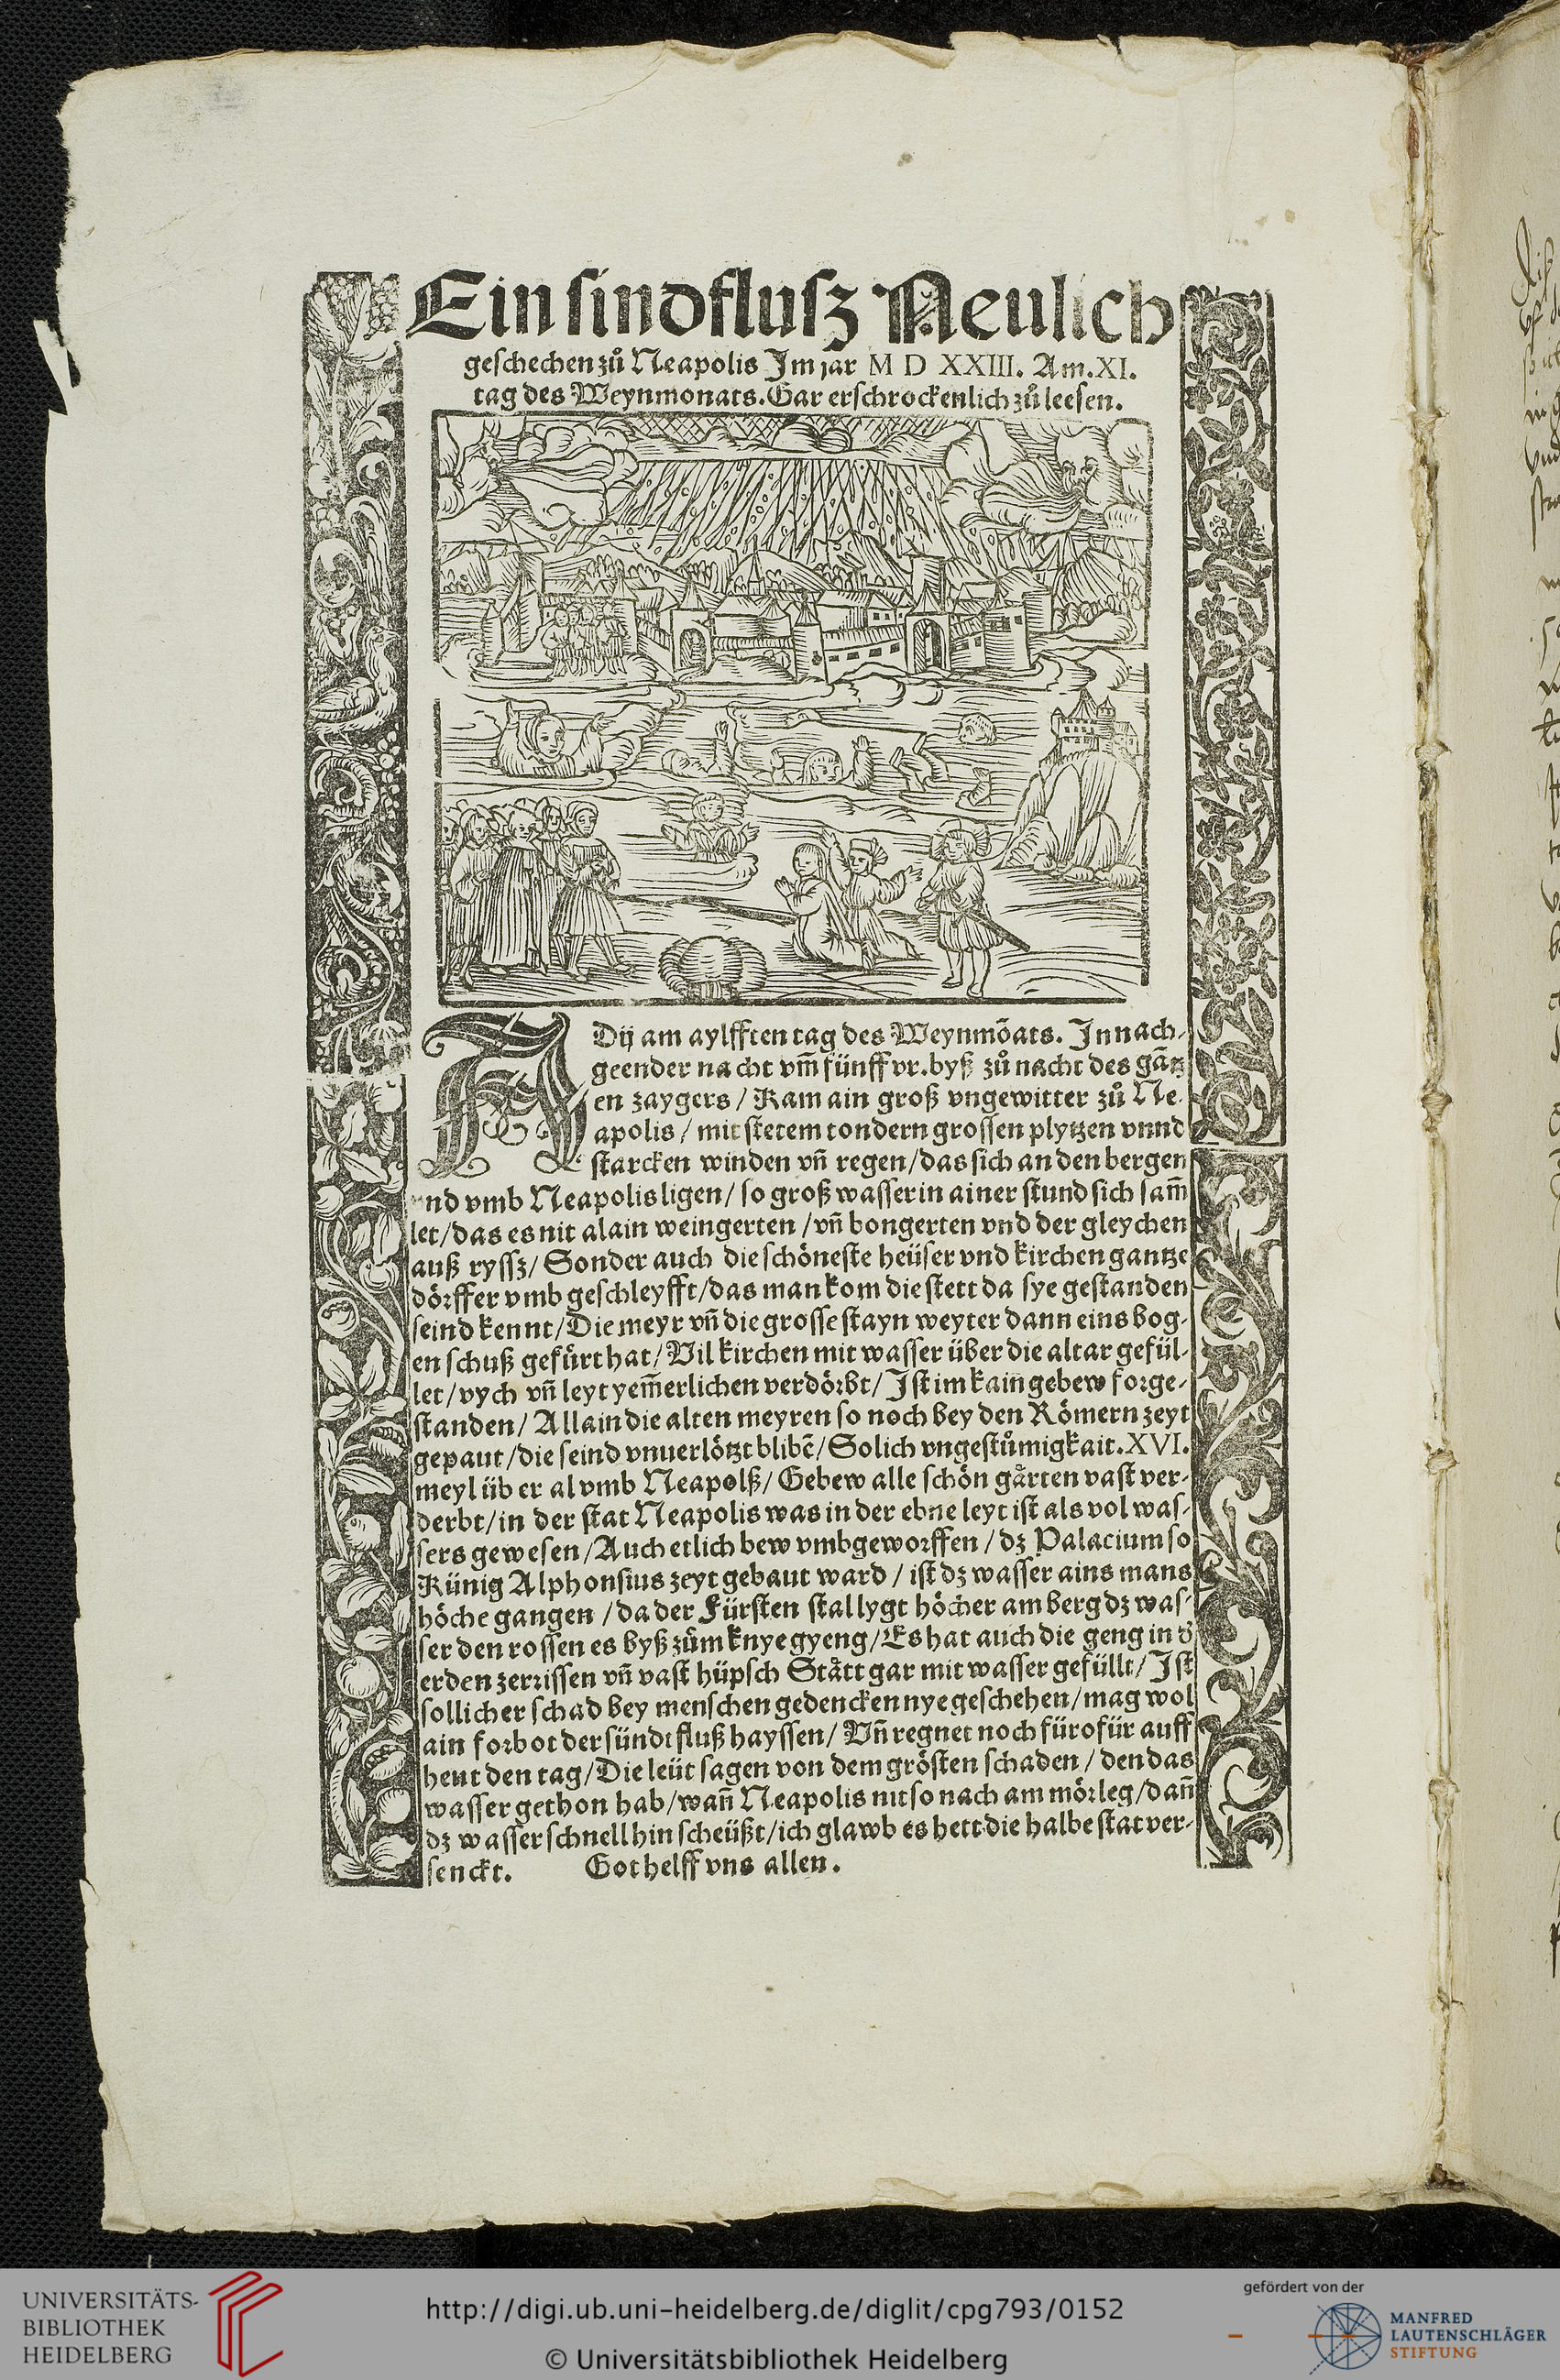 Ein sindflusz Neulich
geschechen zů Neapolis Jm jar M D XXIII. Am. XI.
tag des Weynmonats. Gar erschrockenlich zů leesen.
ADij am aylfften tag des Weynmõats. Jn nach-
geender nacht vm̃ fünff vr. byß zů nacht des gãtz
en zaygers / Kam ain groß vngewitter zů Ne-
apolis / mit stetem tondern grossen plytzen vnnd
starcken winden vñ regen / das sich an den bergen
vnd vmb Neapolis ligen / so groß wasser in ainer stund sich sam̃
let / das es nit alain weingerten / vñ bongerten vnd der gleychen
auß ryssz / Sonder auch die schöneste heüser vnd kirchen gantze
dörffer vmb geschleyfft / das man kom die stett da sye gestanden
seind kennt / Die meyr vñ die grosse stayn weyter dann eins bog-
en schuß gefürt hat / Vil kirchen mit wasser über die altar gefül-
let / vych vñ leyt yem̃erlichen verdörbt / Jst im kain gebew forge-
standen / Allain die alten meyren so noch bey den Römern zeyt
gepaut / die seind vnuerlötzt blibẽ / Solich vngestůmigkait. XVI.
meyl über al vmb Neapolß / Gebew alle schön gårten vast ver-
derbt / in der stat Neapolis was in der ebne leyt ist als vol was-
sers gewesen / Auch etlich bew vmbgeworffen / dz Palacium so
Künig Alphonsius zeyt gebaut ward / ist dz wasser ains mans
höche gangen / da der Fürsten stal lygt höcher am berg dz was-
ser den rossen es byß zům knye gyeng / Es hat auch die geng in d'
erden zerrissen vñ vast hüpsch Stått gar mit wasser gefüllt / Jst
sollicher schad bey menschen gedencken nye geschehen / mag wol
ain forbot der sündtfluß hayssen / Vñ regnet noch fürofür auff
heut den tag / Die leüt sagen von dem grösten schaden / den das
wasser gethon hab / wañ Neapolis nit so nach am mör leg / dañ
dz wasser schnell hin scheüßt / ich glawb es hett die halbe stat ver-
senckt. Got helff vns allen.
UNIVERSITÄTS-
BIBLIOTHEK
HEIDELBERG
http://digi.ub.uni-heidelberg.de/diglit/cpg793/0152
© Universitätsbibliothek Heidelberg
gefördert von der
MANFRED
LAUTENSCHLÄGER
STIFTUNG